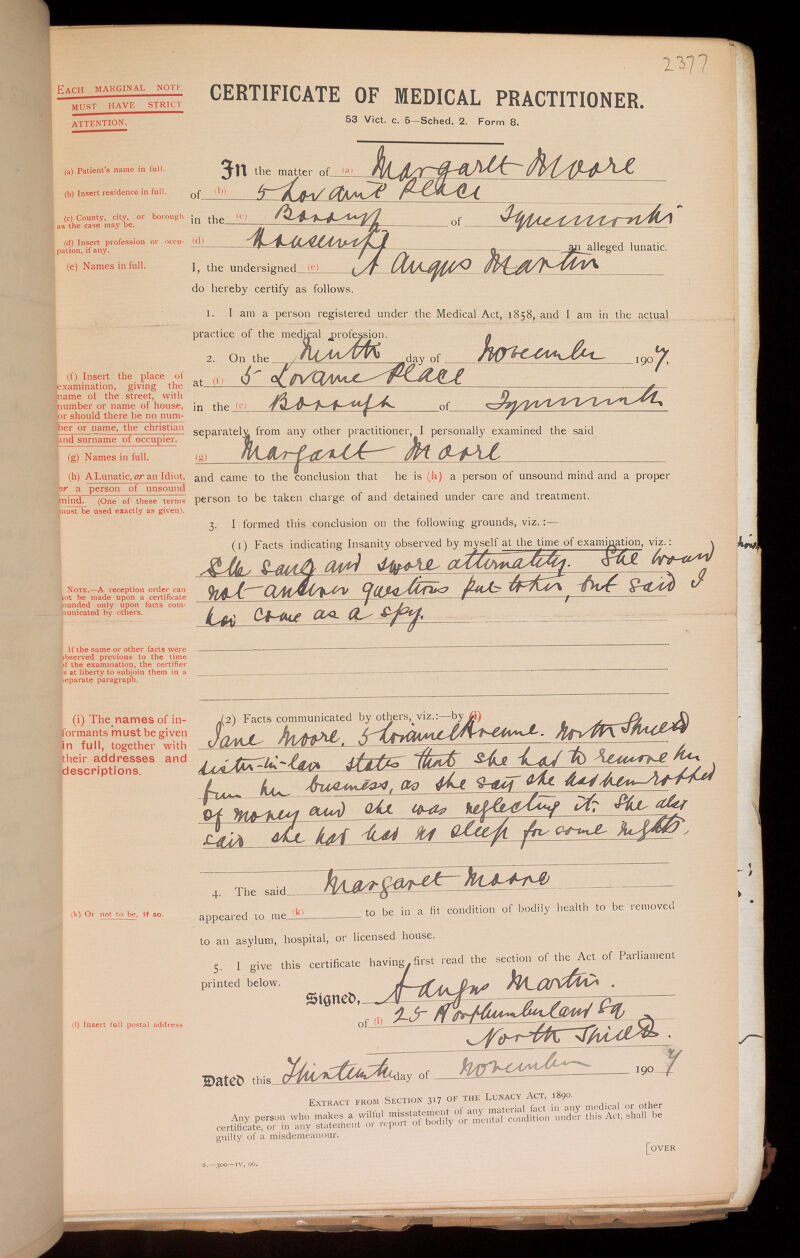 2377
EACH MARGINAL NOTE
MUST HAVE STRICT
ATTENTION.
CERTIFICATE OF MEDICAL PRACTITIONER.
53 Vict. c. 5—Sched. 2. Form 8.
(a) Patient's name in full.
In the matter of (a) Margaret Moore
(b) Insert residence in full.
of (b) 5 Lovaine Place
(c) County, city, or borough
as the case may be.
in the (c) Borough of Tynemouth
(d) Insert profession or occu-
pation, if any.
(d) Housewife an alleged lunatic.
(e) Names in full.
I, the undersigned (e) A Angus Martin
do hereby certify as follows.
1. I am a person registered under the Medical Act, 1858, and I am in the actual
practice of the medical profession.
2. On the Ninth day of November 1907,
(f) Insert the place of
examination, giving the
name of the street, with
number or name of house,
or should there be no num-
ber or name, the christian
and surname of occupier.
at (f) 5 Lovaine Place
in the (c) Borough of Tynemouth
separately from any other practitioner, I personally examined the said
(g) Names in full.
(g) Margaret Moore
(h) A Lunatic, or an Idiot,
or a person of unsound
mind. (One of these terms
must be used exactly as given).
and came to the conclusion that he is (h) a person of unsound mind and a proper
person to be taken charge of and detained under care and treatment.
3. I formed this conclusion on the following grounds, viz.:—
(1) Facts indicating Insanity observed by myself at the time of examination, viz.:
She sang and swore alternately. She would
not answer questions put to her, but said I
had come as a spy.
NOTE.—A reception order can
not be made upon a certificate
founded only upon facts com-
municated by others.
If the same or other facts were
observed previous to the time
of the examination, the certifier
is at liberty to subjoin them in a
separate paragraph.
(i) The names of in-
formants must be given
in full, together with
their addresses and
descriptions.
(2) Facts communicated by others, viz.:—by (i)
Jane Moore, 5 Lovaine Avenue. North Shields
sister-in-law states that she had to remove her
from her business, as she said she had been robbed
of money and she was neglecting it. She also
said she had had no sleep for some nights.
4. The said Margaret Moore
(k) Or not to be, if so.
appeared to me (k) to be in a fit condition of bodily health to be removed
to an asylum, hospital, or licensed house.
5. I give this certificate having first read the section of the Act of Parliament
printed below.
Signed, A Angus Martin.
(l) Insert full postal address
of (l) 25 Northumberland Sq
North Shields.
Dated this Thirteenth day of November 1907
EXTRACT FROM SECTION 317 OF THE LUNACY ACT, 1890.
Any person who makes a wilful misstatement of any material fact in any medical or other
certificate, or in any statement or report of bodily or mental condition under this Act, shall be
guilty of a misdemeanour.
[OVER
S.—300—IV, 06.